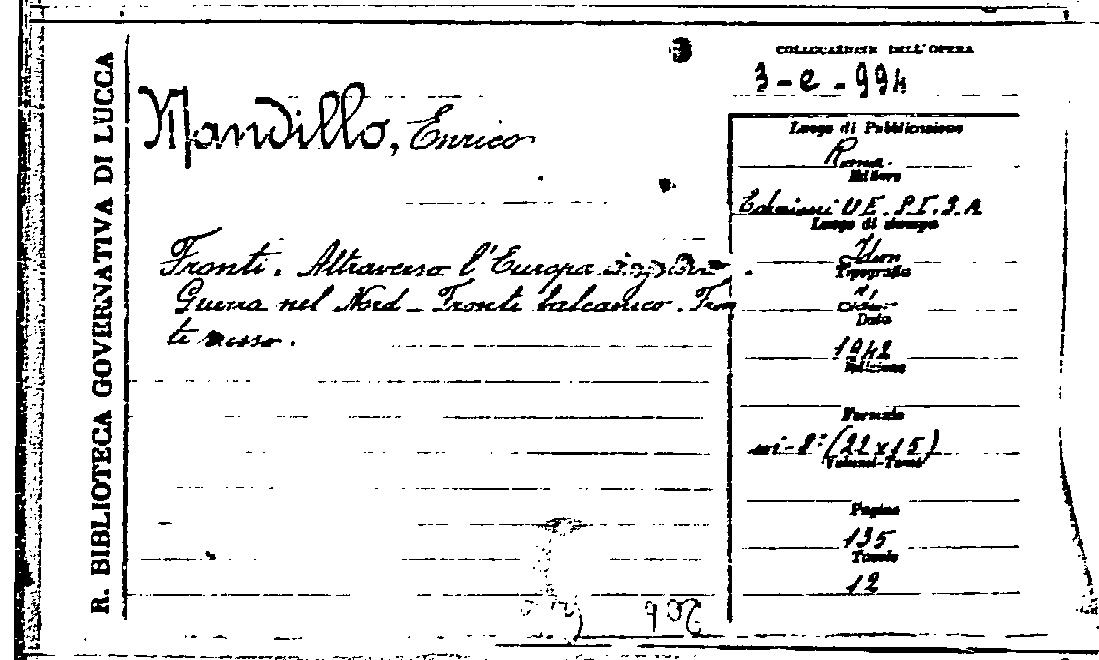 R. BIBLIOTECA GOVERNATIVA DI LUCCA
Mandillo, Enrico
Fronti. Attraverso l'Europa
Guerra nel Nord - Fronte balcanico. Fron
te russo.
COLLOCAZIONE DELL'OPERA
3-e-994
Luogo di Pubblicazione
Roma.
Editore
Edizioni U.E.S.I.S.A
Luogo di stampa
Idem
Tipografia
Data
1942
Edizione
Formato
in-8° (22x15)
Volumi-Tomi
Pagine
135
Tavole
12